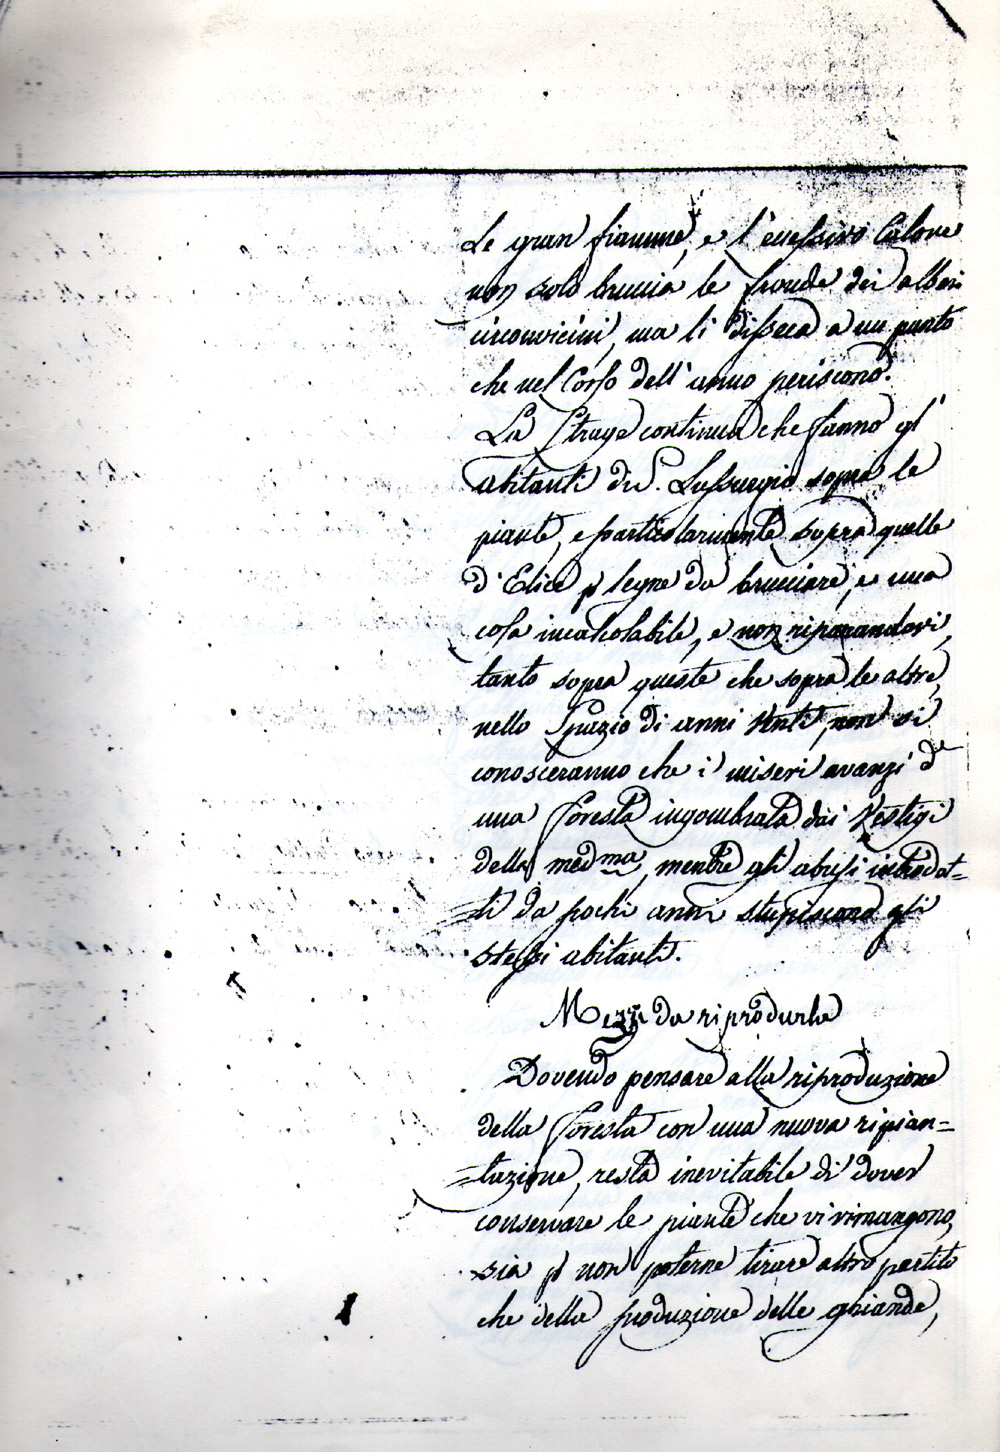 Le gran fiamme, e l'eccessivo Calore
non solo bruccia le fronde dei alberi
circonvicini, ma li disseca a un punto
che nel Corso dell'anno periscono.
La Strage continua che fanno gl'
abitanti di S. Lussurgio sopra le
piante, e particolarmente sopra quelle
d'Elice p legne da brucciare, e una
cosa incalcolabile, e non riparandovi,
tanto sopra queste che sopra le altre,
nello Spazio di anni Venti, non si
conosceranno che i miseri avanzi d'
una Foresta ingombrata dai Vestigi
della medma, mentre gli abusi introdot=
=ti da pochi anni stupiscono gli
stessi abitanti.
Mezzi da riprodurla
Dovendo pensare alla riproduzione
della Foresta con una nuova ripian=
=tazione, resta inevitabile di dover
conservare le piante che vi rimangono,
sia p non poterne tirare altro partito
che della produzione delle ghiande,